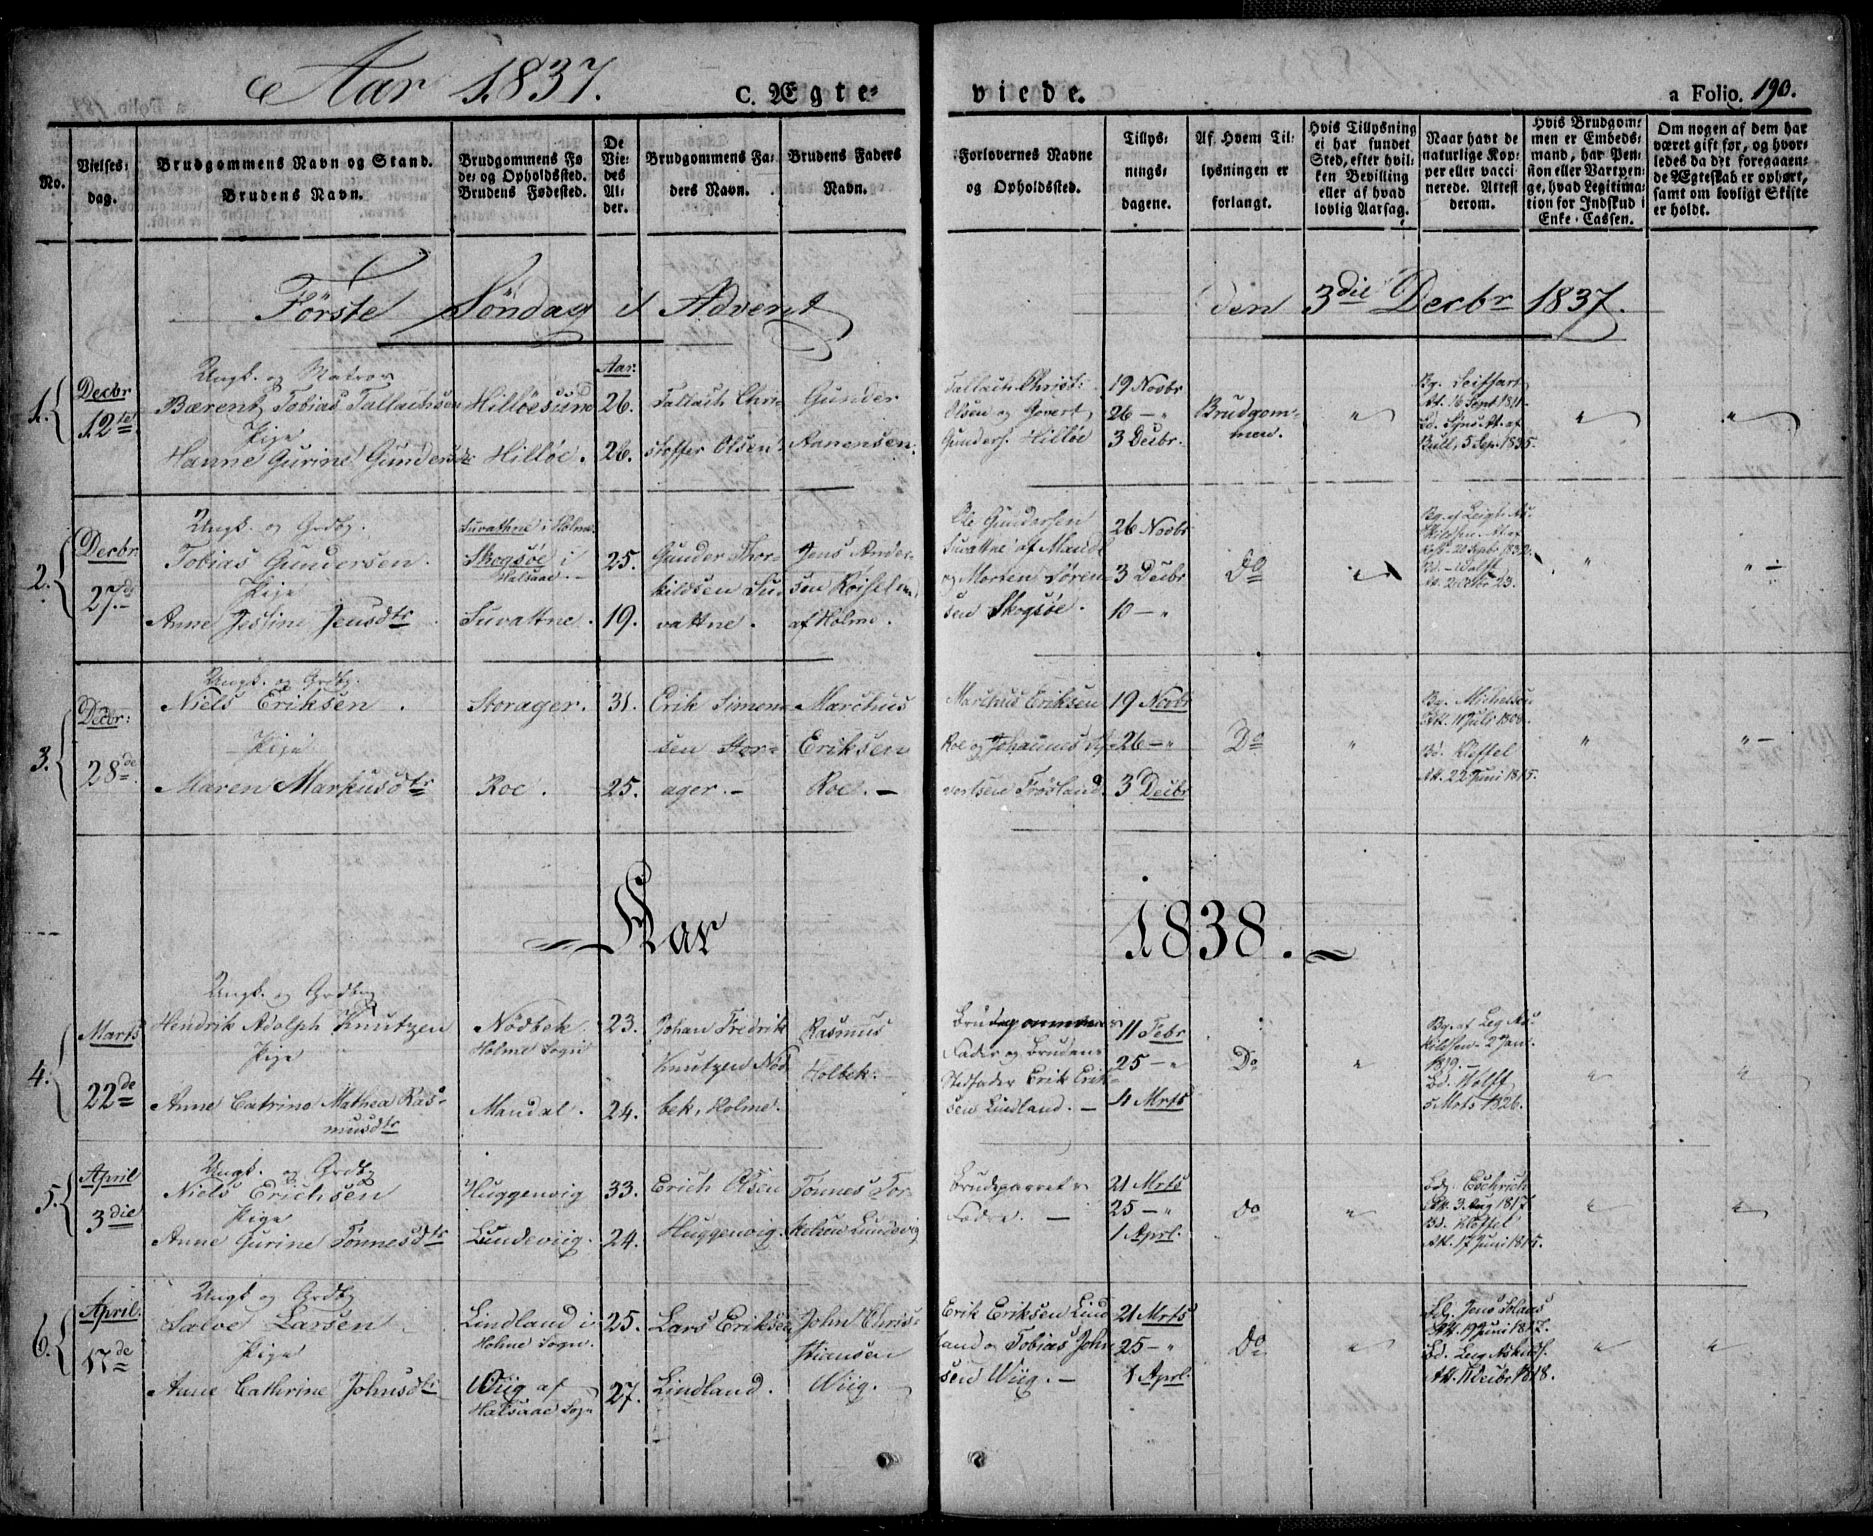 Aar 1837.
C. Ægte-
viede.
a Folio. 190.
No.
Vielses-
dag.
Brudgommens Navn og Stand.
Brudens Navn.
Brudgommens Fø-
de- og Opholdssted.
Brudens Fødested.
De
Vie-
des
Al-
der.
Brudgommens Fa-
ders Navn.
Brudens Faders
Navn.
Forlovernes Navne
og Opholdssted.
Tillys-
nings-
dagene.
Af Hvem Til-
lysningen er
forlangt.
Hvis Tillysning
ei har fundet
Sted, efter hvil-
ken Bevilling
eller af hvad
lovlig Aarsag.
Naar havt de
naturlige Kop-
per eller vacci-
nerede. Attest
derom.
Hvis Brudgom-
men er Embeds-
mand, har Pen-
sion eller Vartpen-
ge, hvad Legitima-
tion for Indskud i
Enke-Cassen.
Om nogen af dem har
været gift før, og hvor-
ledes da det foregaaen-
de Ægteskab er ophørt,
samt om lovligt Skifte
er holdt.
Første Søndag i Advent
den 3die Decbr 1837.
1.
Decbr
12te.
Ungk. og Matros
Bærent Tobias Tallachsen
Pige
Hanne Gurine Gundersdtr
Hillöesund
Hillöe.
Aar.
26.
26.
Tallach Chri-
stoffer Olsen
Gunder
Aanensen.
Tallach Christ:
Olsen og Govert
Gunders. Hillöe
19 Novbr
26 — "
3 Decbr.
Brudgom-
men.
"
Bg. Seithart
Att. 16 Sept. 1811.
Bull, 5 Sep. 1835.
"
"
2.
Decbr.
27de
Ungk. og Grdbr.
Tobias Gundersen.
Pige
Anne Jessine Jensdtr.
Suvathne i Holme.
Skogsöe i
Halsaae.
Suvattne.
25.
19.
Gunder Thor-
kildsen Su-
vattne.
Jens Ander-
sen
af Holme.
Ole Gundersen
Suvattne af Mandl
og Morten Sören-
sen Skogsöe.
26 Novbr
3 Decbr
10 — "
Do
"
"
" —
3.
Decbr:
28de.
Ungk. og Grdbr.
Niels Eriksen.
Pige
Maren Markusdtr
Storager.
Roe.
31.
25.
Erik Simon-
sen Stor-
ager. —
Marchus
Eriksen
Roe. —
Marchus Eriksen
Roe og Johannes
Frösland.
19 Novbr
26 — "
3 Decbr
Do
"
Bg. Michelsen
Att. 11 Juli 1808.
Bd. Kieffel
Att. 22 Juni 1815.
"
" —
Aar
1838.
4.
Marts
22de
Ungk. og Grdbr
Hendrik Adolph Knutzen
Pige
Anne Catrine Mathea Ras-
musdtr
Nödbek.
Holme Sogn
Mandal.
23.
24.
Johan Fredrik
Knutzen Nöd
bek, Holme.
Rasmus
Holbek.
Brudgommens
Fader og Brudens
Stedfader Erik Erik-
sen Lindland. —
11 Febr
25 — "
4 Mrts
Do
"
2 Jan.
1819. —
Bd. Wolff
5 Mrts 1826.
"
"
5.
April
3die
Ungk. og Grdbr
Niels Erichsen
Pige
Anne Gurine Tönnesdtr
Huggenvig
Lundeviig.
33.
24.
Erich Olsen
Huggenvig.
Tönnes Tor-
kelsen Lundevig
Brudeparrets
Fædre. —
21 Mrts
25 — "
1 Aprl.
do
"
Bg. Eschrich
Att. 3 Aug 1817.
Bd. Kleffel
Att. 17 Juni 1815.
"
"
6.
April.
17de
Ungk og Grdbr
Salve Larsen
Pige
Anne Cathrine Johnsdtr
Lindland i
Holme Sogn.
Wiig af
Halsaae Sogn
25.
27.
Lars Eriksen
Lindland.
John Chris-
tiansen
Wiig.
Erik Eriksen Lind
land og Tobias John
sen Wiig. —
21 Mrts
25 — "
1 Aprl.
Do
"
Bg. Jens Blaas
Att. 19 Juni 1817.
Att. 11 Decbr 1818.
"
"